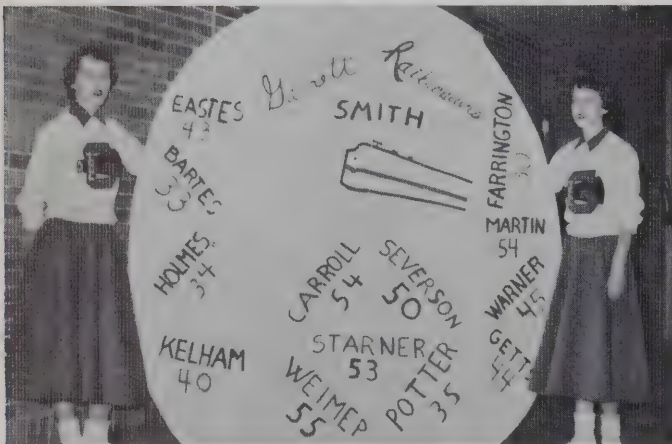 Garrett Railroaders
SMITH
EASTES
43
BARTES
33
HOLMES
34
KELHAM
40
CARROLL
54
SEVERSON
50
STARNER
53
WEIMER
55
POTTER
35
FARRINGTON
MARTIN
54
WARNER
45
GETT
44
G
G